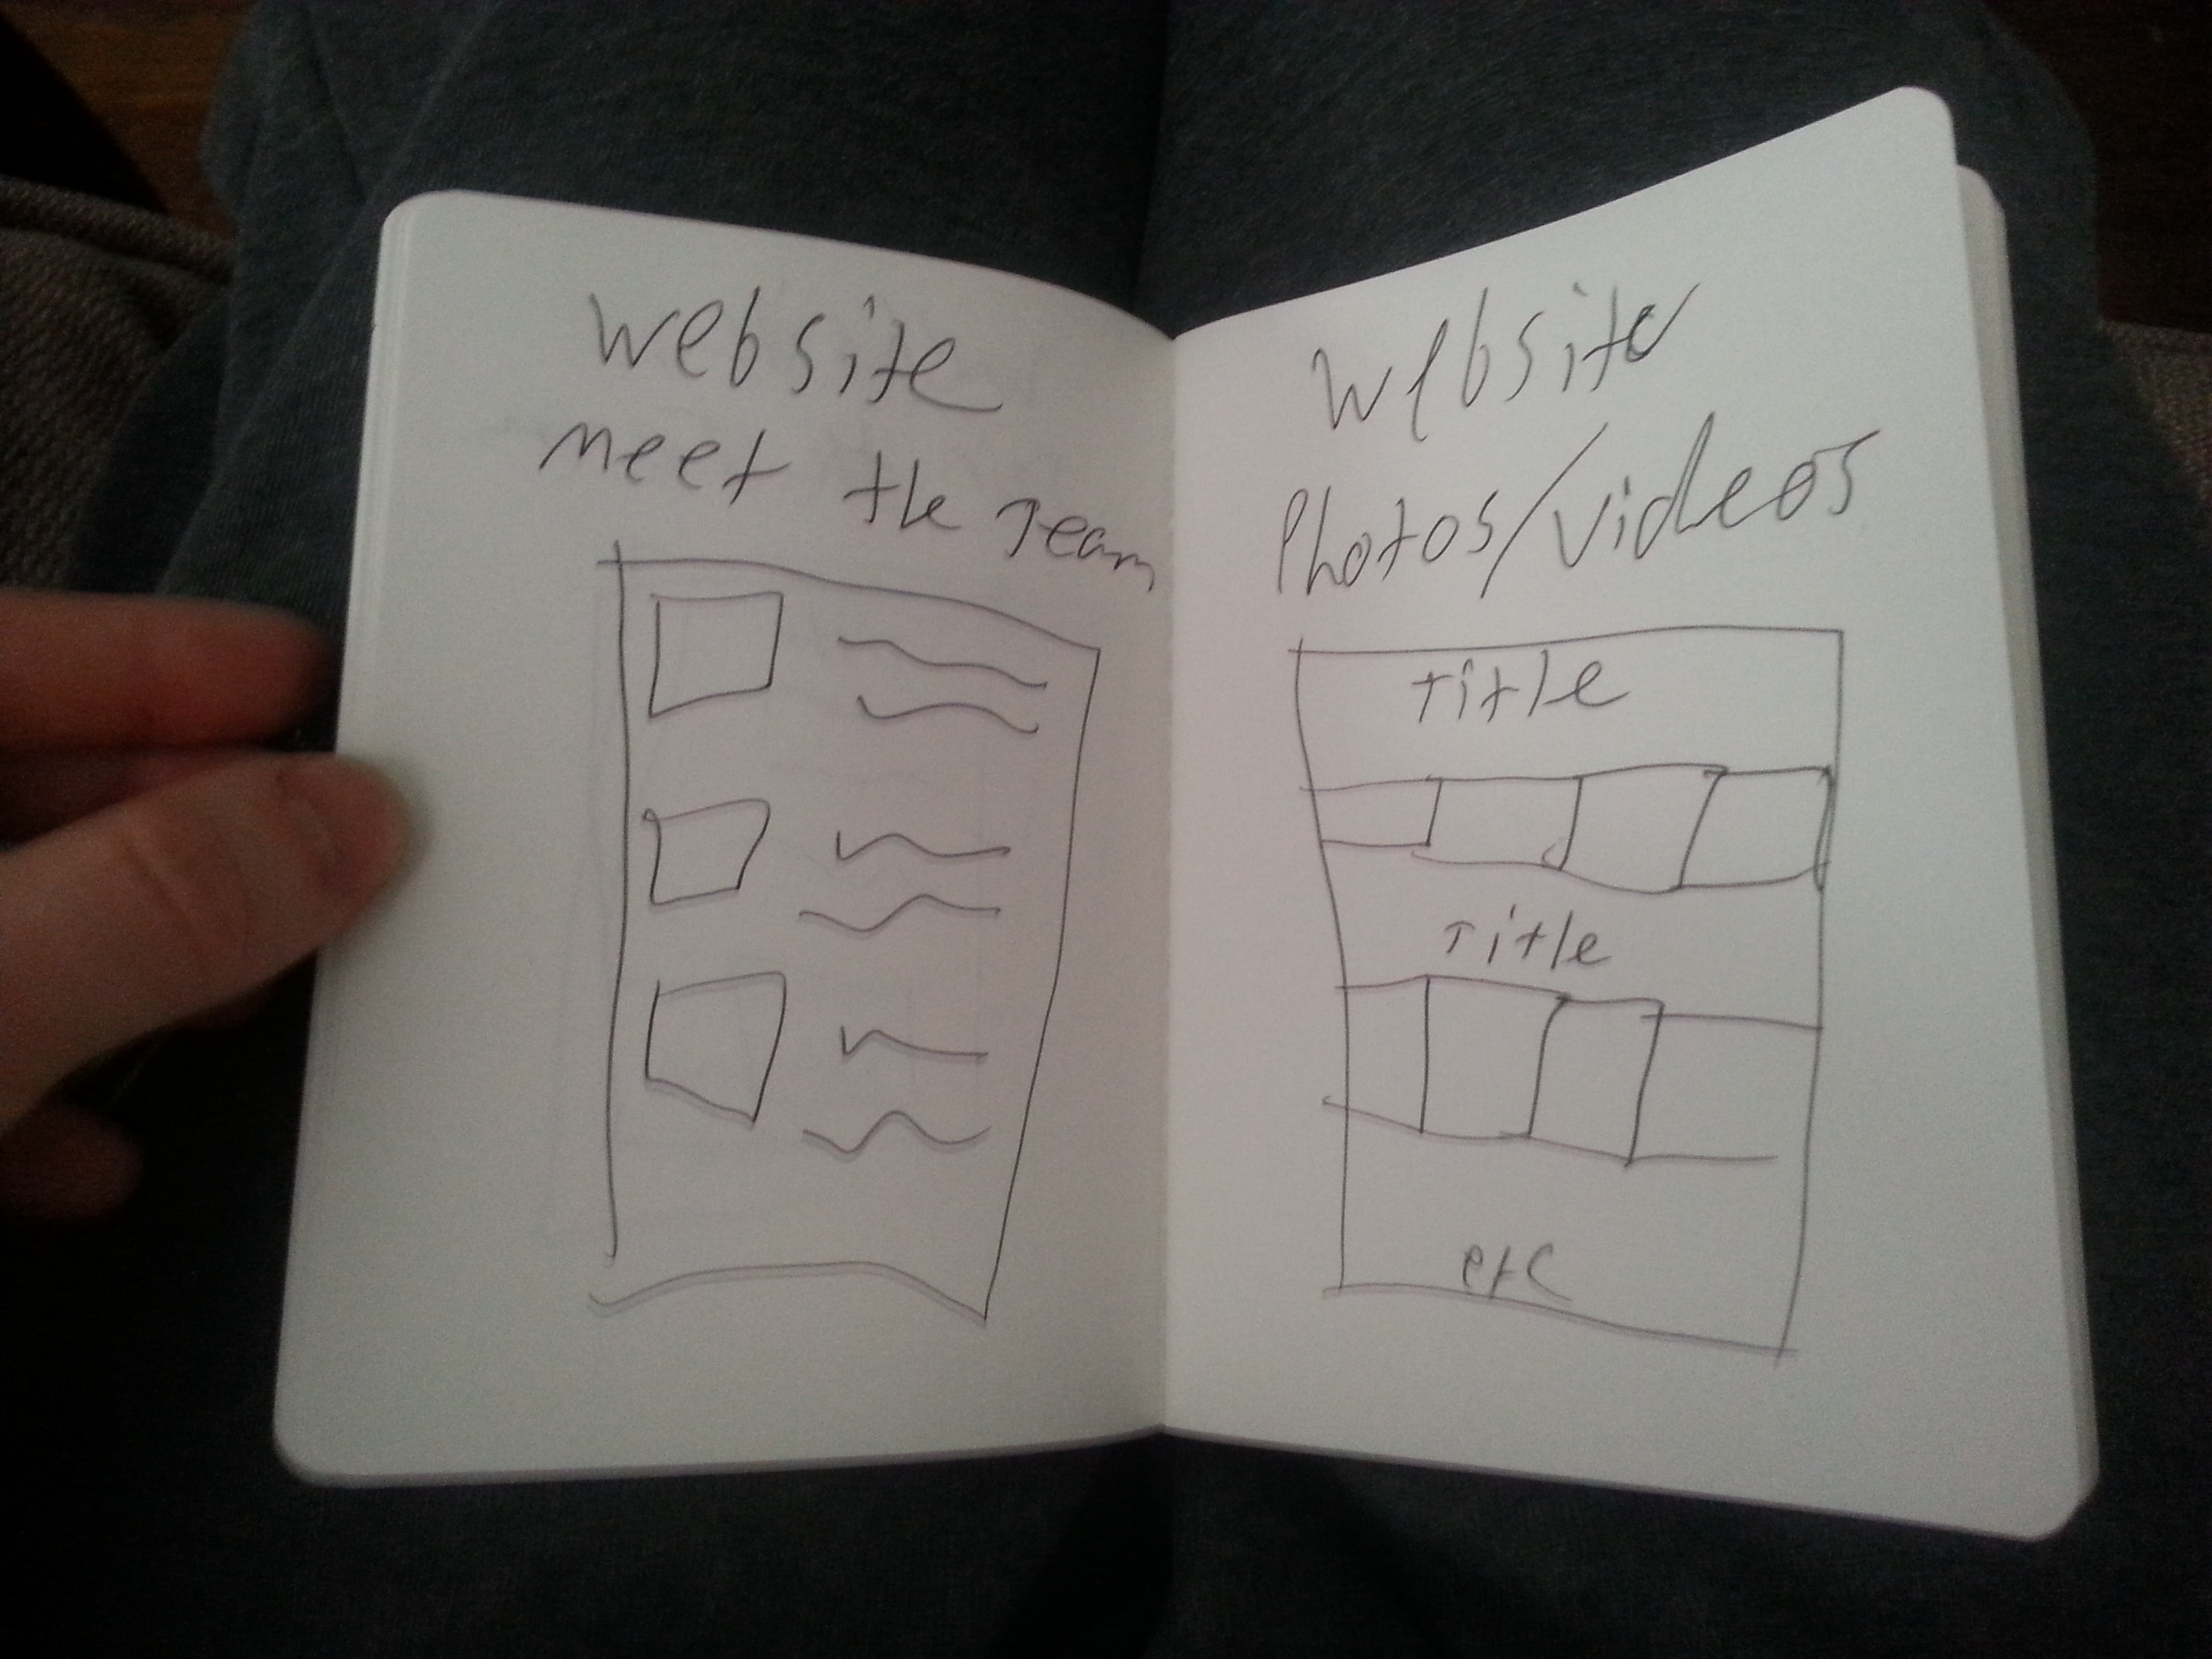 Website
Meet the Team
Website
Photos/Videos
Title
Title
etc